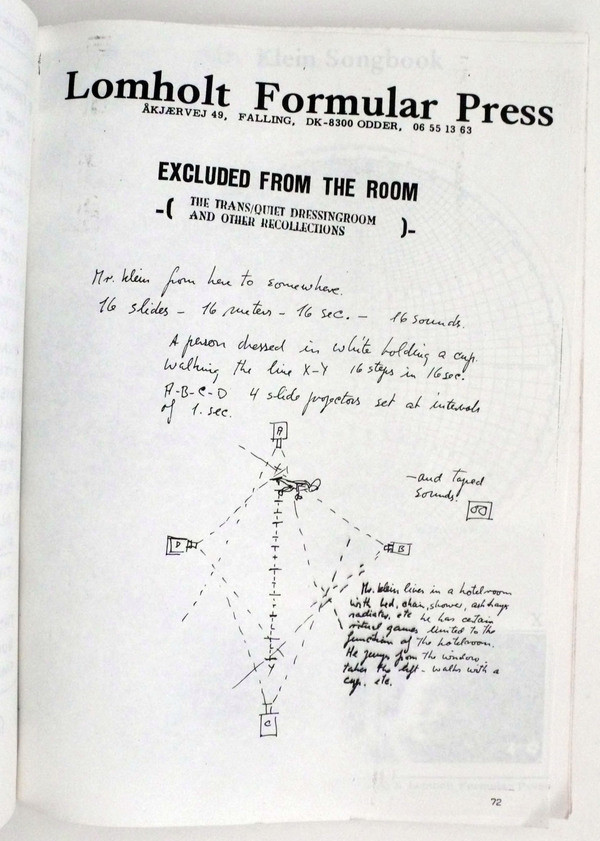 Klein Songbook
Lomholt Formular Press
ÅKJÆRVEJ 49, FALLING, DK-8300 ODDER, 06 55 13 63
EXCLUDED FROM THE ROOM
-( THE TRANS/QUIET DRESSINGROOM
AND OTHER RECOLLECTIONS )-
Mr. Klein from here to somewhere.
16 slides - 16 meters - 16 sec. - 16 sounds.
A person dressed in white holding a cup.
Walking the line X-Y 16 steps in 16 sec.
A-B-C-D 4 slide projectors set at intervals
of 1. sec.
A
-and taped
sounds.
D
B
Mr. Klein lives in a hotelroom
with bed, chair, shower, ashtrays
radiator, etc he has certain
ritual games limited to the
function of the hotelroom.
He jumps from the window
takes the lift - walks with a
cup. etc.
C
72